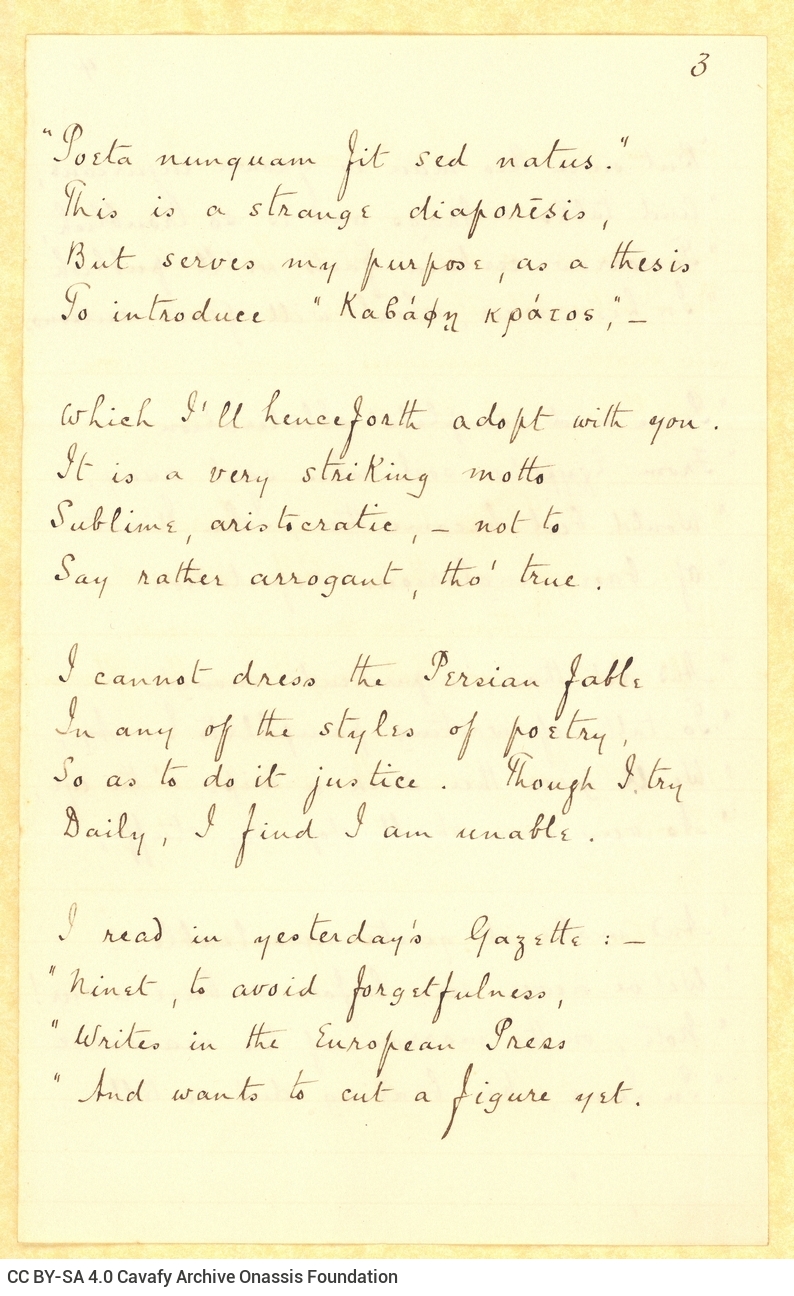 3
"Poeta nunquam fit sed natus."
This is a strange diaporēsis,
But serves my purpose, as a thesis
To introduce "Καβάφη κράτος," –
Which I'll henceforth adopt with you.
It is a very striking motto
Sublime, aristocratic, – not to
Say rather arrogant, tho' true.
I cannot dress the Persian fable
In any of the styles of poetry,
So as to do it justice. Though I try
Daily, I find I am unable.
I read in yesterday's Gazette: –
"Ninet, to avoid forgetfulness,
"Writes in the European Press
"And wants to cut a figure yet.
CC BY-SA 4.0 Cavafy Archive Onassis Foundation